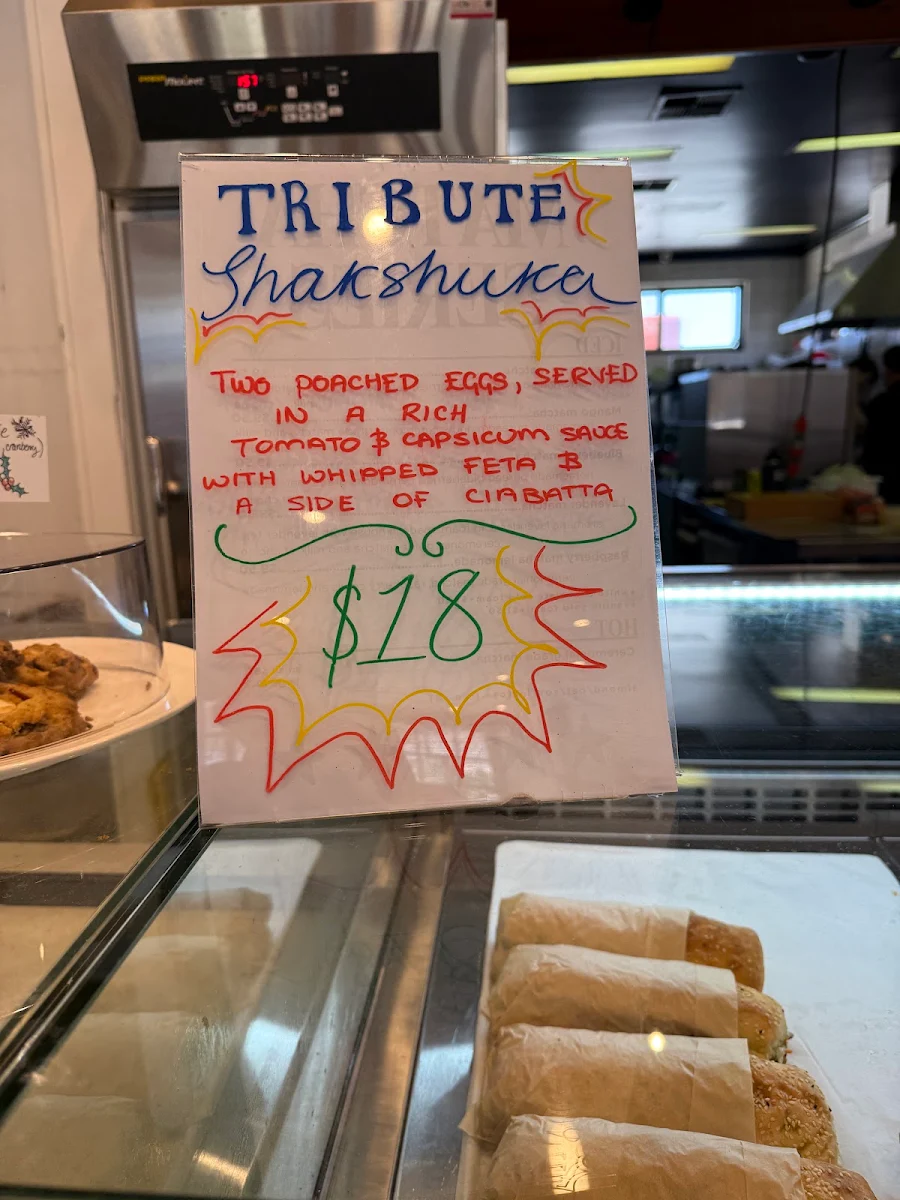 TRIBUTE
Shakshuka
TWO POACHED EGGS, SERVED
IN A RICH
TOMATO & CAPSICUM SAUCE
WITH WHIPPED FETA &
A SIDE OF CIABATTA
$18
157